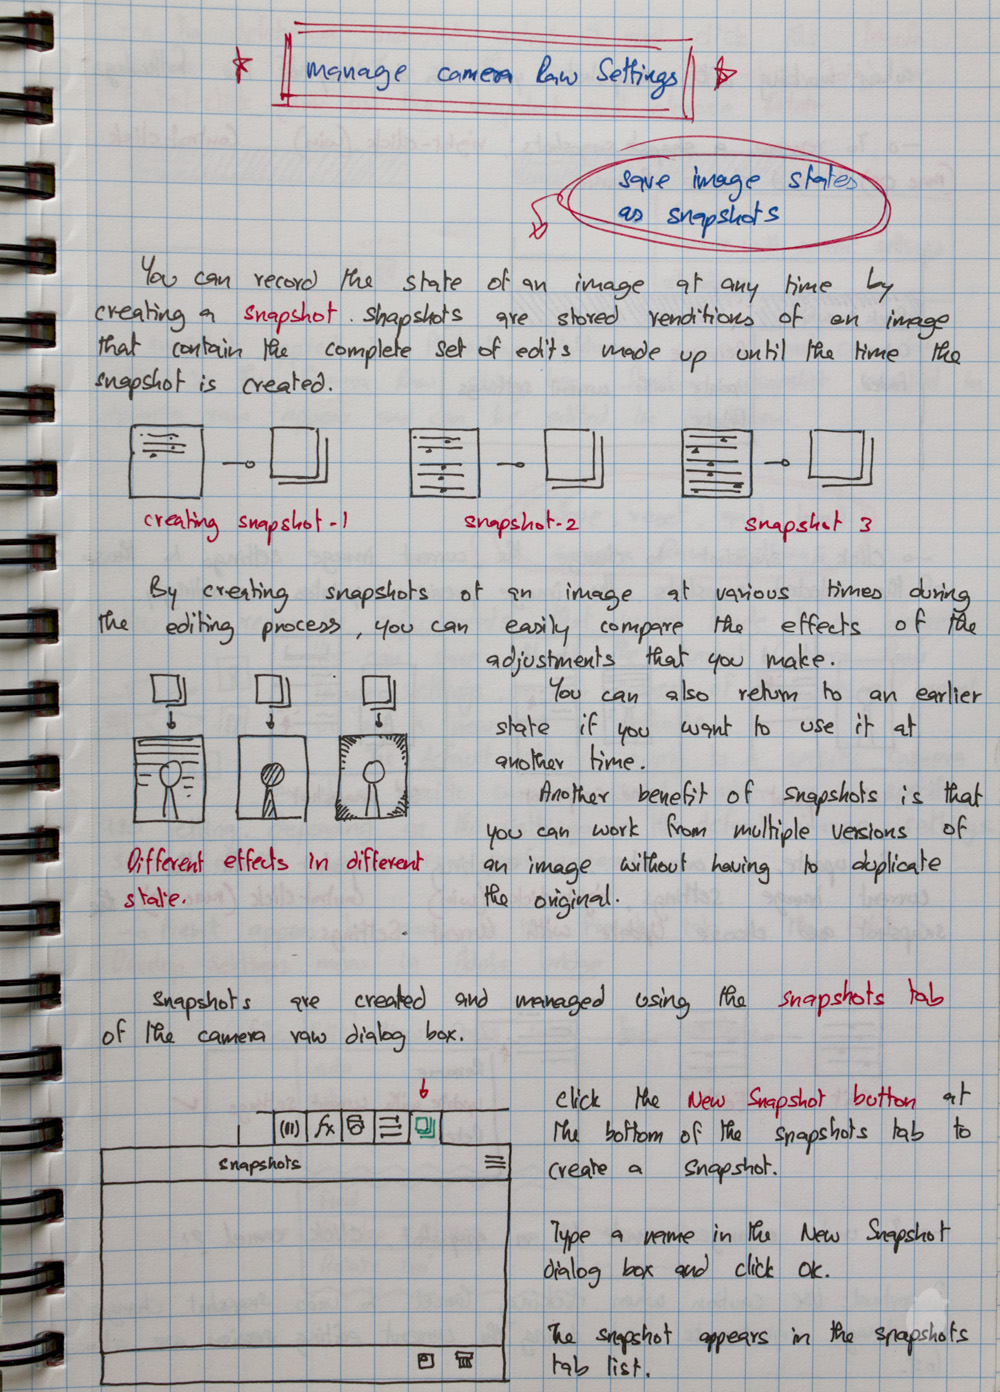 manage camera Raw Settings
save image states
as snapshots
You can record the state of an image at any time by
creating a snapshot. snapshots are stored renditions of an image
that contain the complete set of edits made up until the time the
snapshot is created.
creating snapshot-1
snapshot-2
snapshot 3
By creating snapshots of an image at various times during
the editing process, you can easily compare the effects of the
adjustments that you make.
You can also return to an earlier
state if you want to use it at
another time.
Another benefit of snapshots is that
you can work from multiple versions of
an image without having to duplicate
the original.
Different effects in different
state.
snapshots are created and managed using the snapshots tab
of the camera raw dialog box.
fx
snapshots
click the New Snapshot button at
the bottom of the snapshots tab to
create a snapshot.
Type a name in the New Snapshot
dialog box and click ok.
The snapshot appears in the snapshots
tab list.